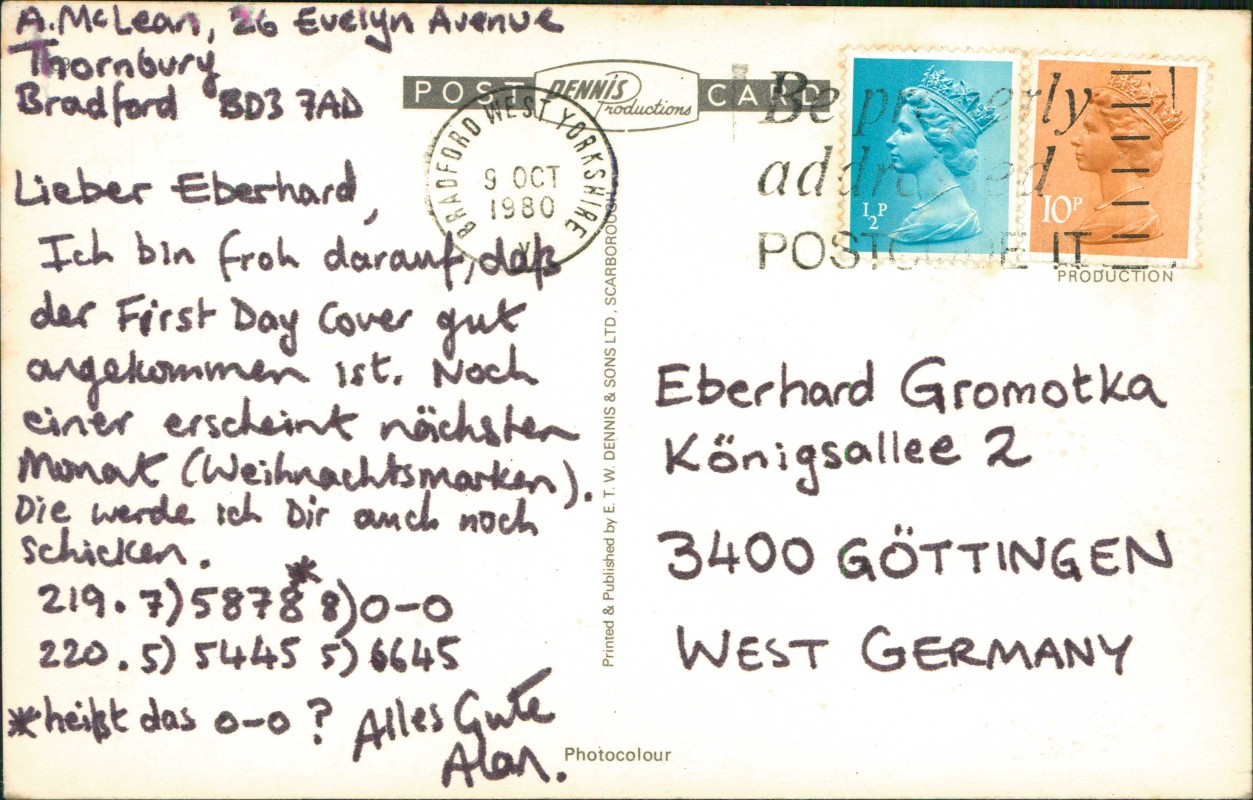 A. McLean, 26 Evelyn Avenue
Thornbury
Bradford BD3 7AD
Lieber Eberhard,
Ich bin froh darauf, daß
der First Day Cover gut
angekommen ist. Noch
einer erscheint nächsten
Monat (Weihnachtsmarken).
Die werde ich Dir auch noch
schicken.
219. 7) 5878* 8) 0-0
220. 5) 5445 5) 6645
*heißt das 0-0? Alles Gute
Alan.
POST DENNIS Productions CARD
BRADFORD WEST YORKSHIRE
9 OCT
1980
Y
Be properly
addressed
POSTCODE IT
½P
10P
PRODUCTION
Printed & Published by E. T. W. DENNIS & SONS LTD., SCARBOROUGH
Eberhard Gromotka
Königsallee 2
3400 GÖTTINGEN
WEST GERMANY
Photocolour